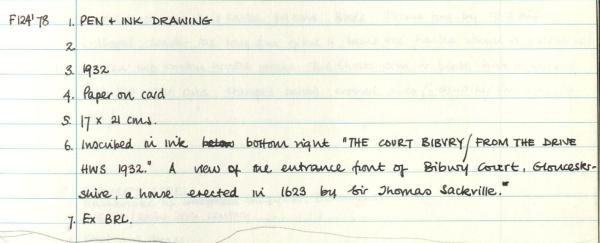 F124'78 1. PEN & INK DRAWING
2
3. 1932
4. Paper on card
5. 17 x 21 cms.
6. Inscribed in ink below bottom right "THE COURT BIBURY/FROM THE DRIVE
HWS 1932." A view of the entrance front of Bibury Court, Gloucester-
shire, a house erected in 1623 by Sir Thomas Sackville."
7. Ex BRL.